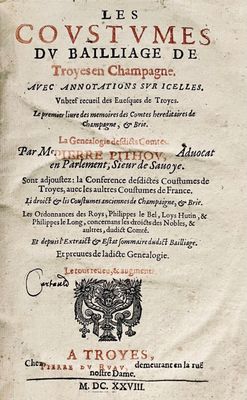 LES
COVSTVMES
DV BAILLIAGE DE
Troyes en Champagne.
AVEC ANNOTATIONS SVR ICELLES.
Vn bref recueil des Euesques de Troyes.
Le premier liure des memoires des Comtes hereditaires de
Champagne, & Brie.
La Genealogie desdicts Comtes.
Par Me PIERRE PITHOV, Aduocat
en Parlement, Sieur de Sauoye.
Sont adioustez: la Conference desdictes Coustumes de
Troyes, auec les aultres Coustumes de France.
Le droict & les Coustumes anciennes de Champaigne, & Brie.
Les Ordonnances des Roys, Philippes le Bel, Loys Hutin, &
Philippes le Long, concernans les droicts des Nobles, &
aultres, dudict Comté.
Et depuis l'Extraict & Estat sommaire dudict Bailliage.
Et preuues de ladicte Genealogie.
Le tout reueu, & augmenté.
A TROYES,
Chez PIERRE DV RVAV, demeurant en la ruë
nostre Dame.
M. DC. XXVIII.